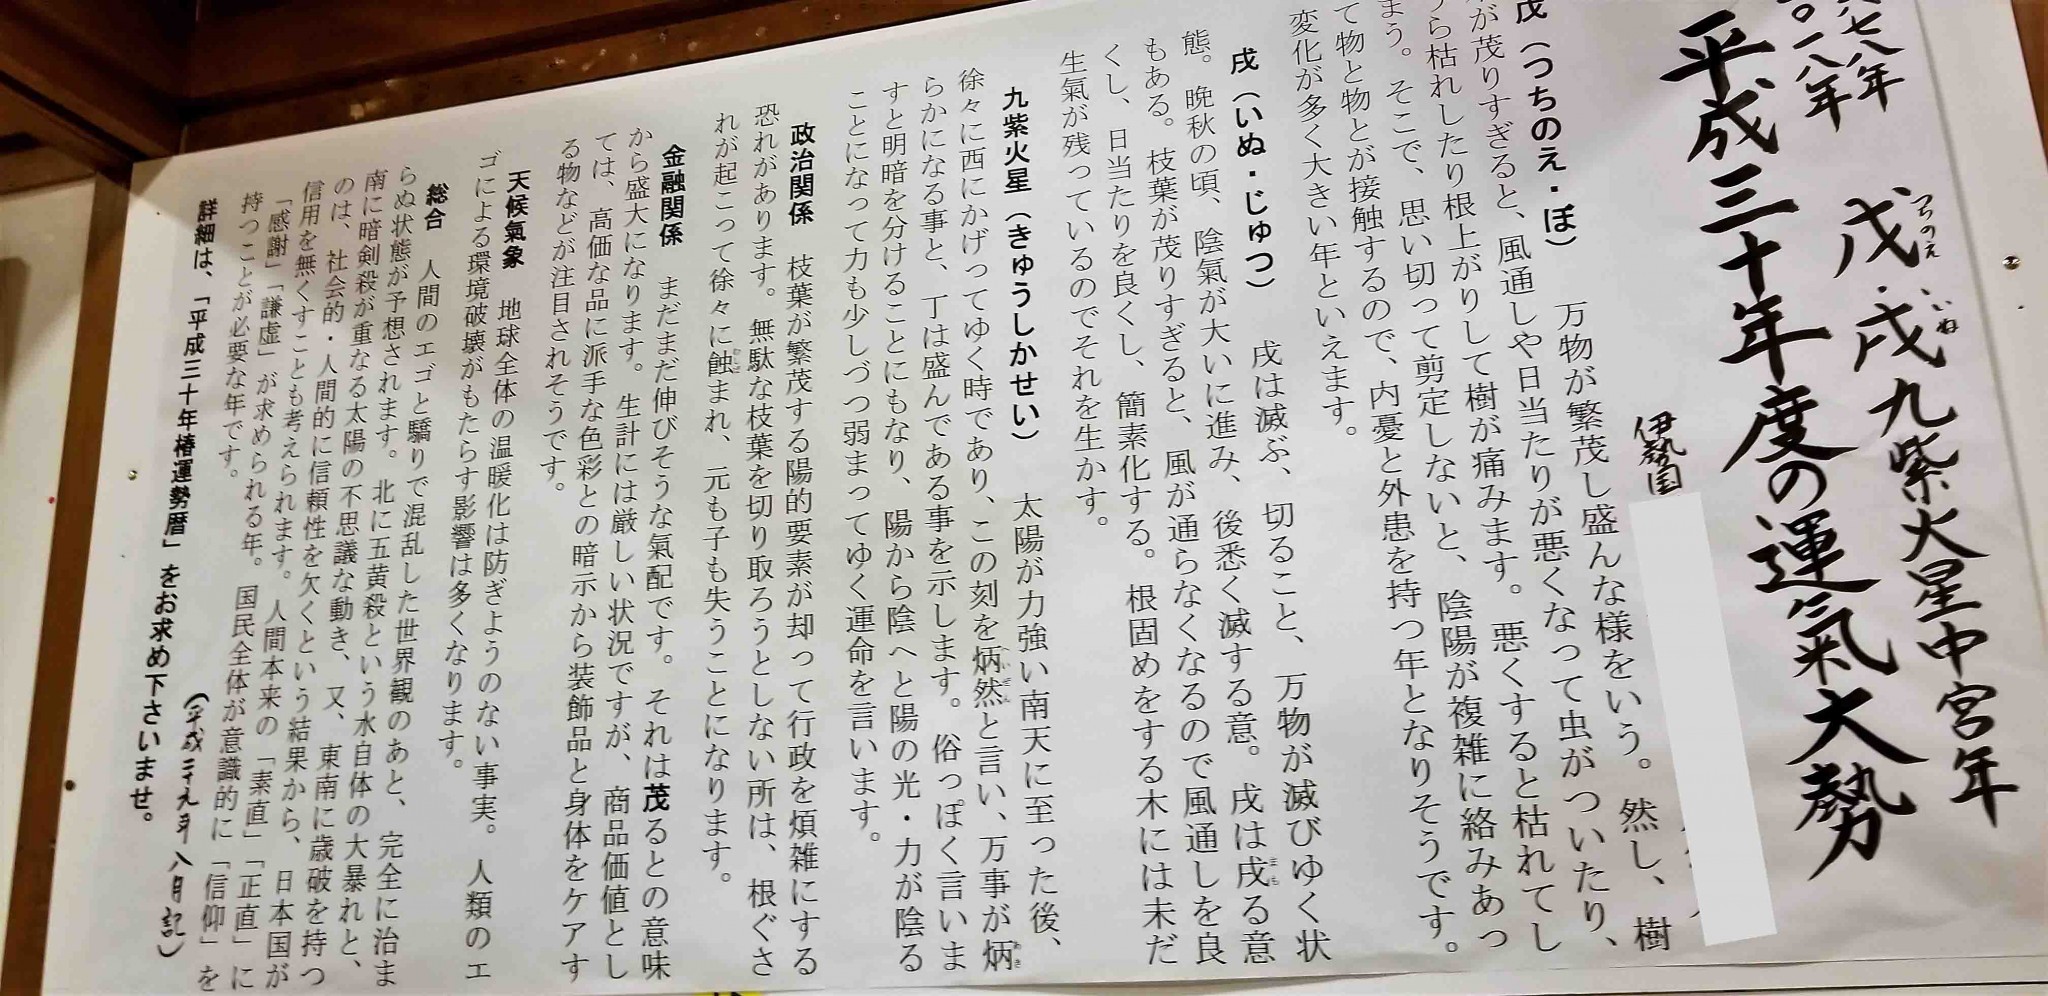 七八年
〇一八年
戊・戌九紫火星中宮年
つちのえ いぬ
平成三十年度の運氣大勢
伊勢国
戊（つちのえ・ぼ）　万物が繁茂し盛んな様をいう。然し、樹
が茂りすぎると、風通しや日当たりが悪くなって虫がついたり、
うら枯れしたり根上がりして樹が痛みます。悪くすると枯れてし
まう。そこで、思い切って剪定しないと、陰陽が複雑に絡みあっ
て物と物とが接触するので、内憂と外患を持つ年となりそうです。
変化が多く大きい年といえます。
戌（いぬ・じゅつ）　戌は滅ぶ、切ること、万物が滅びゆく状
態。晩秋の頃、陰氣が大いに進み、後悉く滅する意。戌は戌る意
まも
もある。枝葉が茂りすぎると、風が通らなくなるので風通しを良
くし、日当たりを良くし、簡素化する。根固めをする木には未だ
生氣が残っているのでそれを生かす。
九紫火星（きゅうしかせい）　太陽が力強い南天に至った後、
徐々に西にかげってゆく時であり、この刻を炳然と言い、万事が炳
へいぜん あき
らかになる事と、丁は盛んである事を示します。俗っぽく言いま
すと明暗を分けることにもなり、陽から陰へと陽の光・力が陰る
ことになって力も少しづつ弱まってゆく運命を言います。
政治関係　枝葉が繁茂する陽的要素が却って行政を煩雑にする
恐れがあります。無駄な枝葉を切り取ろうとしない所は、根ぐさ
れが起こって徐々に蝕まれ、元も子も失うことになります。
むしば
金融関係　まだまだ伸びそうな氣配です。それは茂るとの意味
から盛大になります。生計には厳しい状況ですが、商品価値とし
ては、高価な品に派手な色彩との暗示から装飾品と身体をケアす
る物などが注目されそうです。
天候氣象　地球全体の温暖化は防ぎようのない事実。人類のエ
ゴによる環境破壊がもたらす影響は多くなります。
総合　人間のエゴと驕りで混乱した世界観のあと、完全に治ま
らぬ状態が予想されます。北に五黄殺という水自体の大暴れと、
南に暗剣殺が重なる太陽の不思議な動き、又、東南に歳破を持つ
のは、社会的・人間的に信頼性を欠くという結果から、日本国が
信用を無くすことも考えられます。人間本来の「素直」「正直」に
「感謝」「謙虚」が求められる年。国民全体が意識的に「信仰」を
持つことが必要な年です。
（平成二十九年八月記）
詳細は、「平成三十年椿運勢暦」をお求め下さいませ。